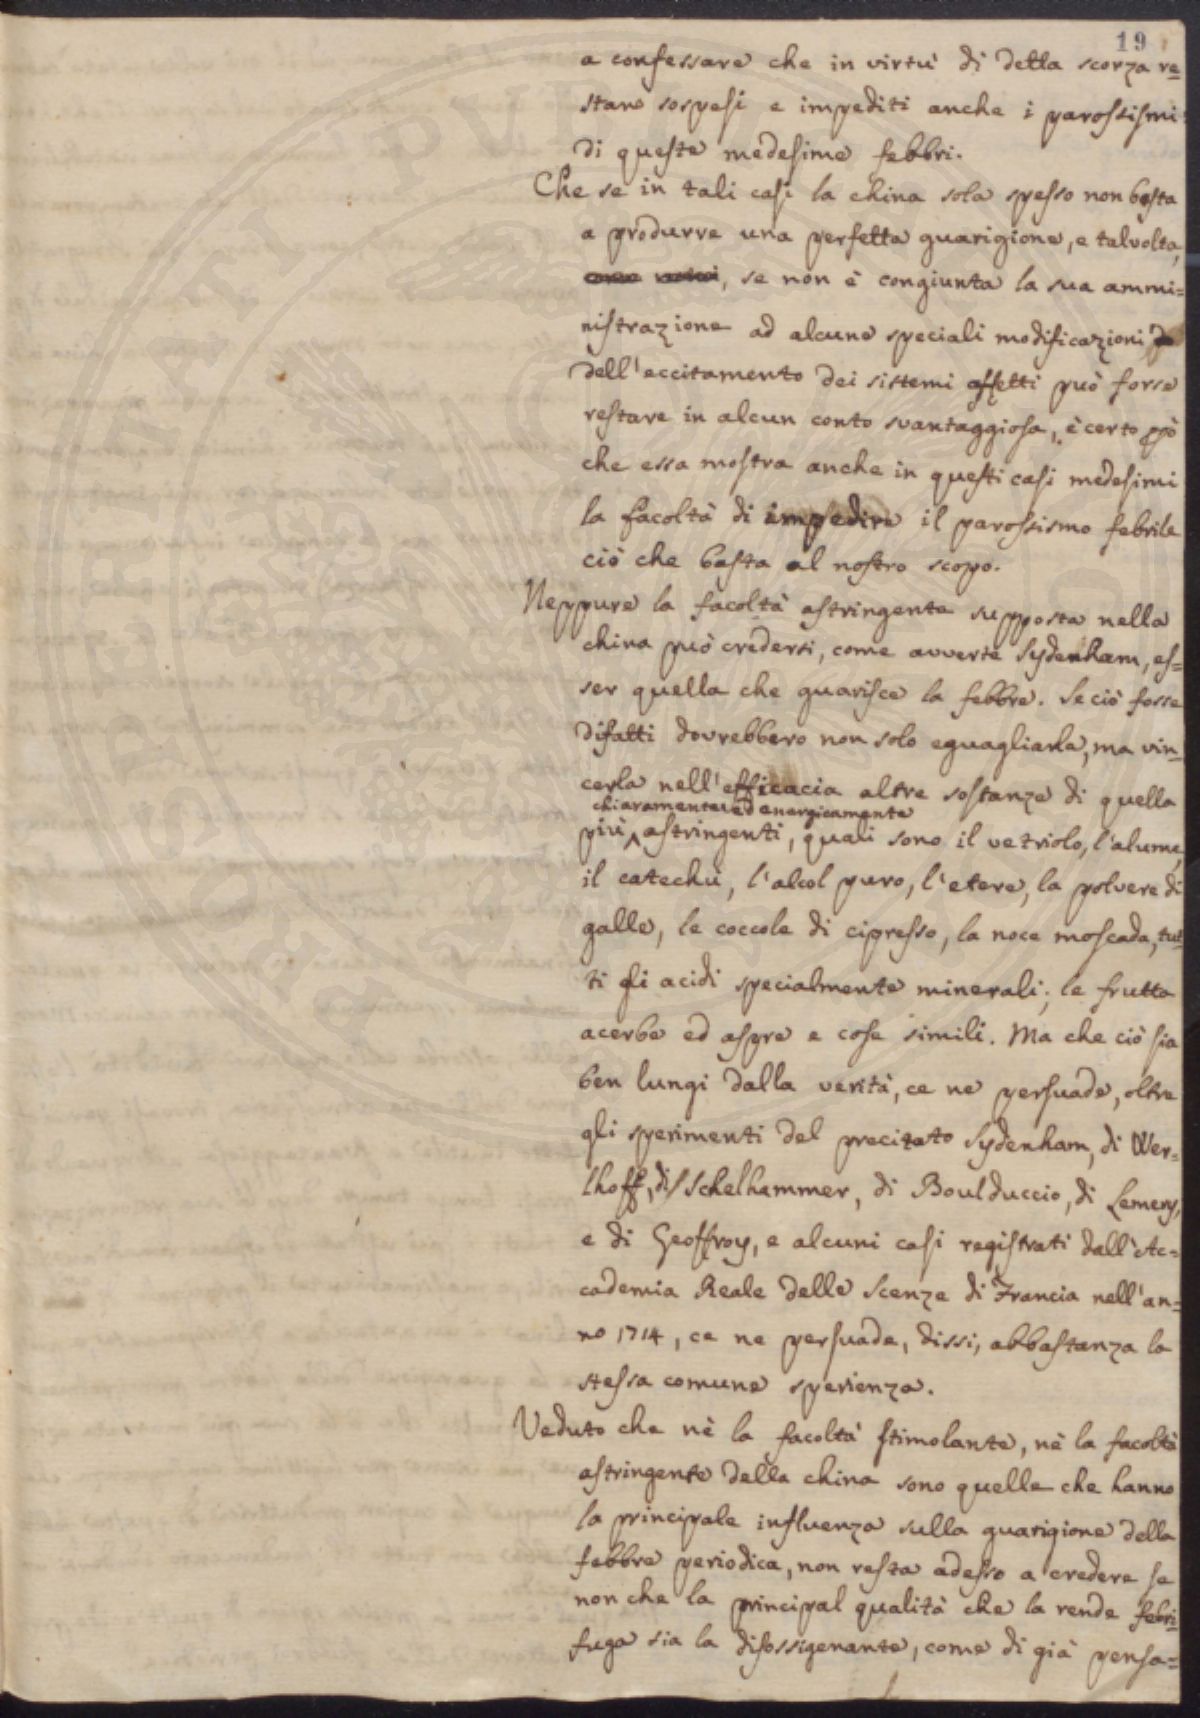 19
a confessare che in virtù di detta scorza re=
stano sospesi e impediti anche i parossismi
di queste medesime febbri.
Che se in tali casi la china sola spesso non basta
a produrre una perfetta guarigione, e talvolta,
, se non è congiunta la sua ammi=
nistrazione ad alcune speciali modificazioni
dell'eccitamento dei sistemi affetti può forse
restare in alcun conto svantaggiosa, è certo ppò
che essa mostra anche in questi casi medesimi
la facoltà di impedire il parossismo febrile
ciò che basta al nostro scopo.
Neppure la facoltà astringente supposta nella
china può credersi, come avverte Sydenham, es=
ser quella che guarisce la febbre. Se ciò fosse
difatti dovrebbero non solo eguagliarla, ma vin=
cerla nell'efficacia altre sostanze di quella
chiaramente ed energicamente
più astringenti, quali sono il vetriolo, l'alume,
il catechù, l'alcol puro, l'etere, la polvere di
galle, le coccole di cipresso, la noce moscada, tut=
ti gli acidi specialmente minerali; le frutta
acerbe ed aspre e cose simili. Ma che ciò sia
ben lungi dalla verità, ce ne persuade, oltre
gli sperimenti del precitato Sydenham, di Wer=
lhoff, di Schelhammer, di Boulduccio, di Lemery,
e di Geoffroy, e alcuni casi registrati dall'Ac=
cademia Reale delle Scenze di Francia nell'an=
no 1714, ce ne persuade, dissi, abbastanza la
stessa comune sperienza.
Veduto che nè la facoltà stimolante, nè la facoltà
astringente della china sono quelle che hanno
la principale influenza sulla guarigione della
febbre periodica, non resta adesso a credere se
non che la principal qualità che la rende febri=
fuga sia la disossigenante, come di già pensa=